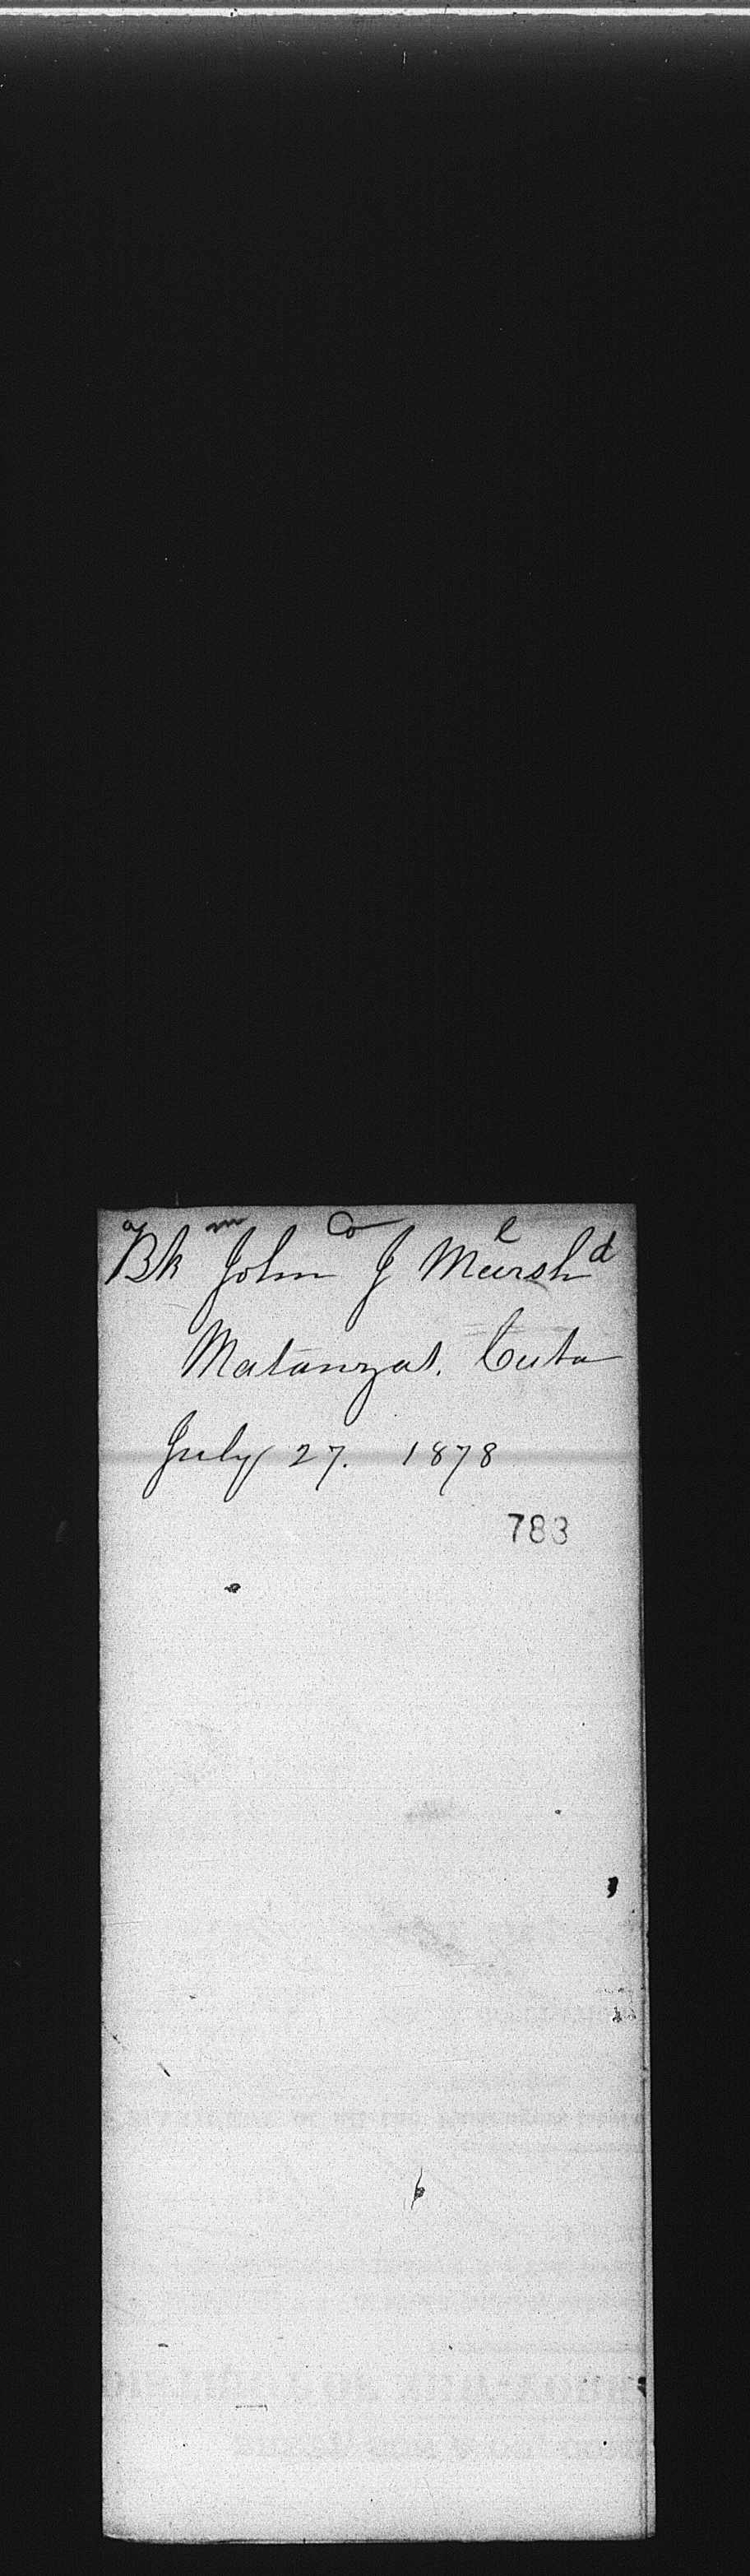 Bk John J Marsh
Matanzas. Cuba
July 27. 1878
783